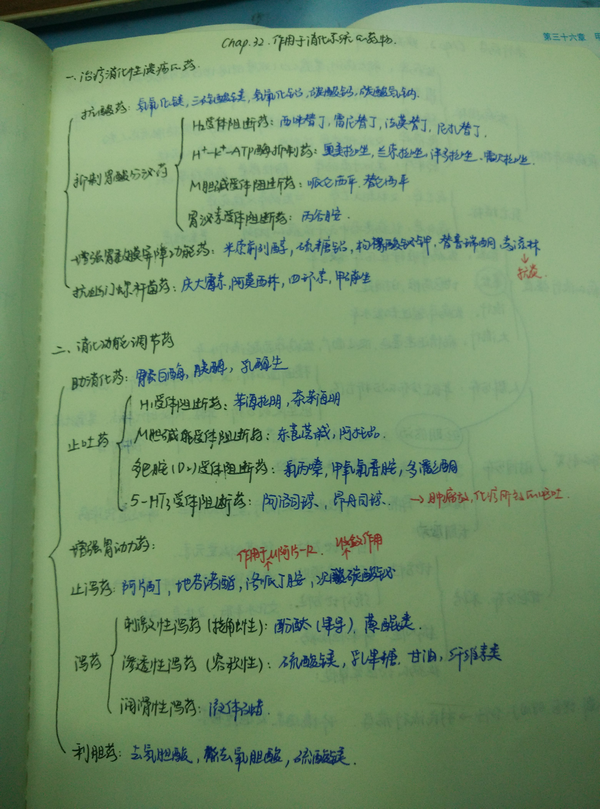 第三十六章
Chap.32.作用于消化系统的药物.
一.治疗消化性溃疡的药
抗酸药:氢氧化镁,三硅酸镁,氢氧化铝,碳酸钙,碳酸氢钠.
抑制胃酸分泌药
H2受体阻断药:西咪替丁,雷尼替丁,法莫替丁,尼扎替丁.
H+-K+-ATP酶抑制药:奥美拉唑,兰索拉唑,泮托拉唑.雷贝拉唑.
M胆碱受体阻断药:哌仑西平.替仑西平
胃泌素受体阻断药:丙谷胺.
增强胃黏膜屏障功能药:米索前列醇,硫糖铝,枸橼酸铋钾,替普瑞酮,麦滋林
抗幽门螺杆菌药:庆大霉素,阿莫西林,四环素,甲硝唑
↓
抗炎
二、消化功能调节药
助消化药:胃蛋白酶,胰酶,乳酶生
止吐药
H1受体阻断药:苯海拉明,茶苯海明
M胆碱受体阻断药:东莨菪碱,阿托品.
多巴胺(D2)受体阻断药:氯丙嗪,甲氧氯普胺,多潘立酮
5-HT3受体阻断药:阿洛司琼.,昂丹司琼. →肿瘤放,化疗所致的呕吐.
增强胃动力药:
作用于μ阿片-R. 收敛作用
止泻药:阿片酊,地芬诺酯,洛哌丁胺,次碳酸铋
泻药
刺激性泻药(接触性):酚酞(果导),蒽醌类.
渗透性泻药(容积性):硫酸镁,乳果糖.甘油,纤维素类
润滑性泻药:液体石蜡.
利胆药:去氢胆酸,熊去氧胆酸,硫酸镁.